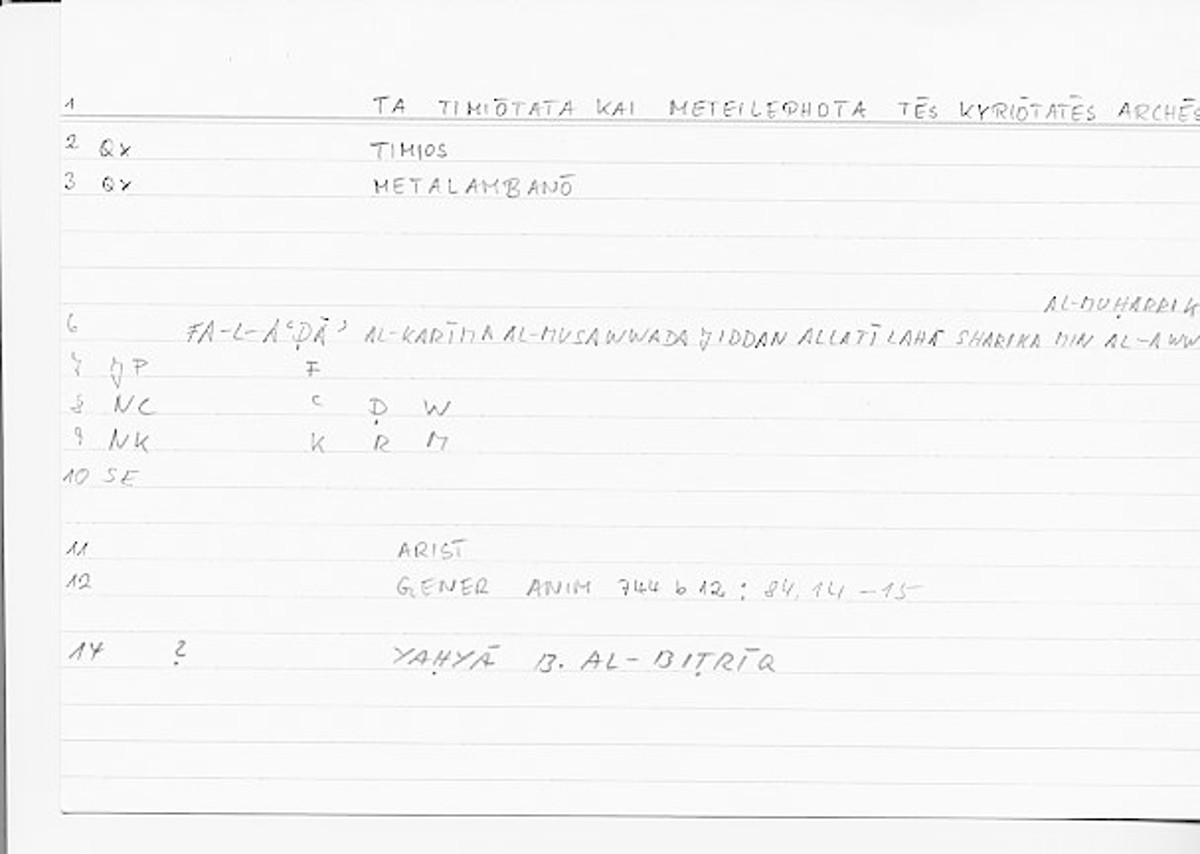 1 TA TIMIŌTATA KAI METEILEPHOTA TĒS KYRIŌTATĒS ARCHĒS
2 Qx TIMIOS
3 Qx METALAMBANŌ
AL-MUḤARRIK
6 FA-L-AʿḌĀʾ AL-KARĪMA AL-MUSAWWADA JIDDAN ALLATĪ LAHĀ SHARIKA MIN AL-AWW
7 JP F
8 NC ʿ Ḍ W
9 NK K R M
10 SE
11 ARIST
12 GENER ANIM 744 b 12 : 84, 14 - 15
14 ? YAḤYĀ B. AL-BIṬRĪQ